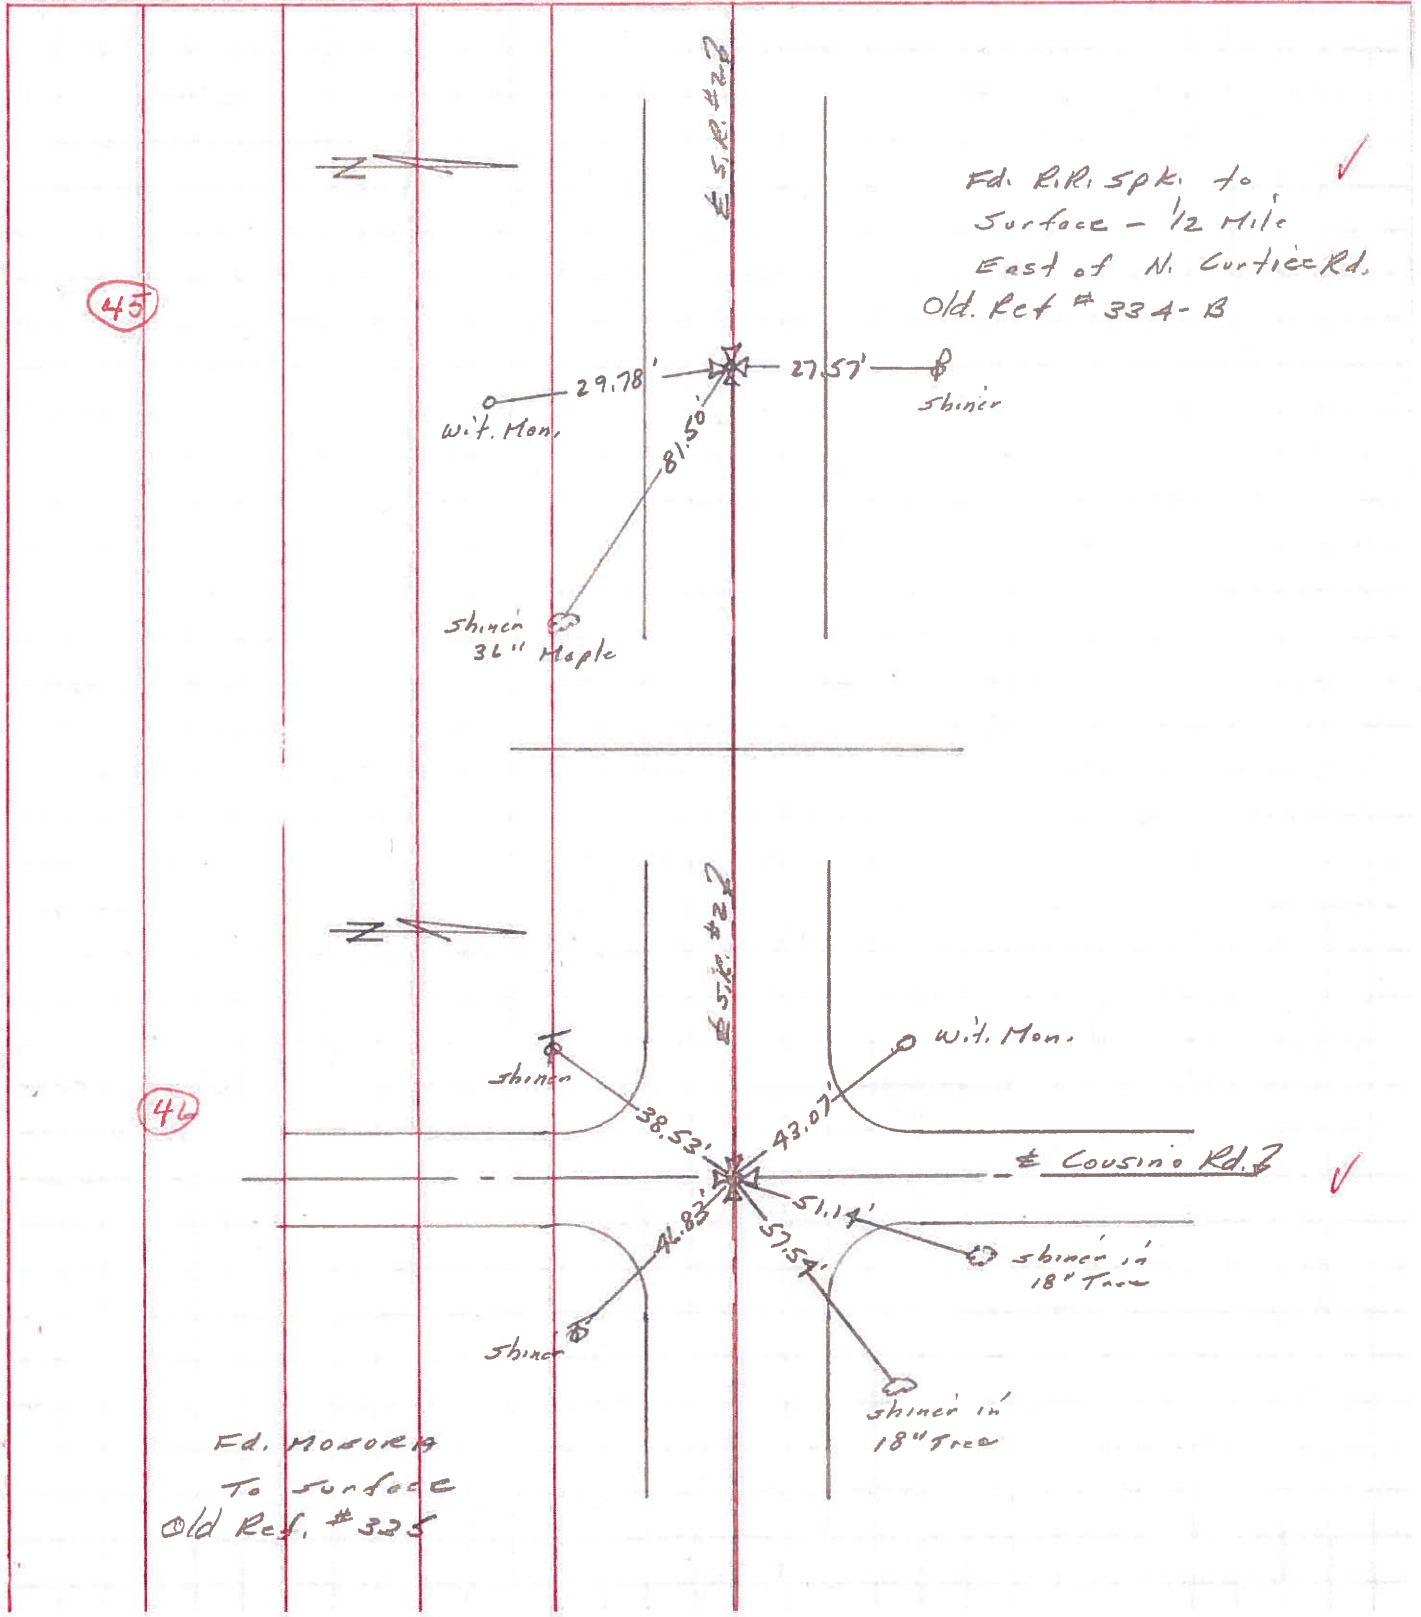 ℄ S.R. #2
N
Fd. R.R. Spk. to
Surface - 1/2 Mile
East of N. Curtice Rd.
Old. Ref # 334-B
45
29.78'
27.57'
81.50'
Wit. Mon.
Shiner
Shiner
36" Maple
℄ S.R. #2
N
Wit. Mon.
Shiner
46
38.53'
43.07'
℄ Cousino Rd.
46.83'
51.14'
57.54'
Shiner in
18" Tree
Shiner
Shiner in
18" Tree
Fd.
To Surface
Old Ref. #335